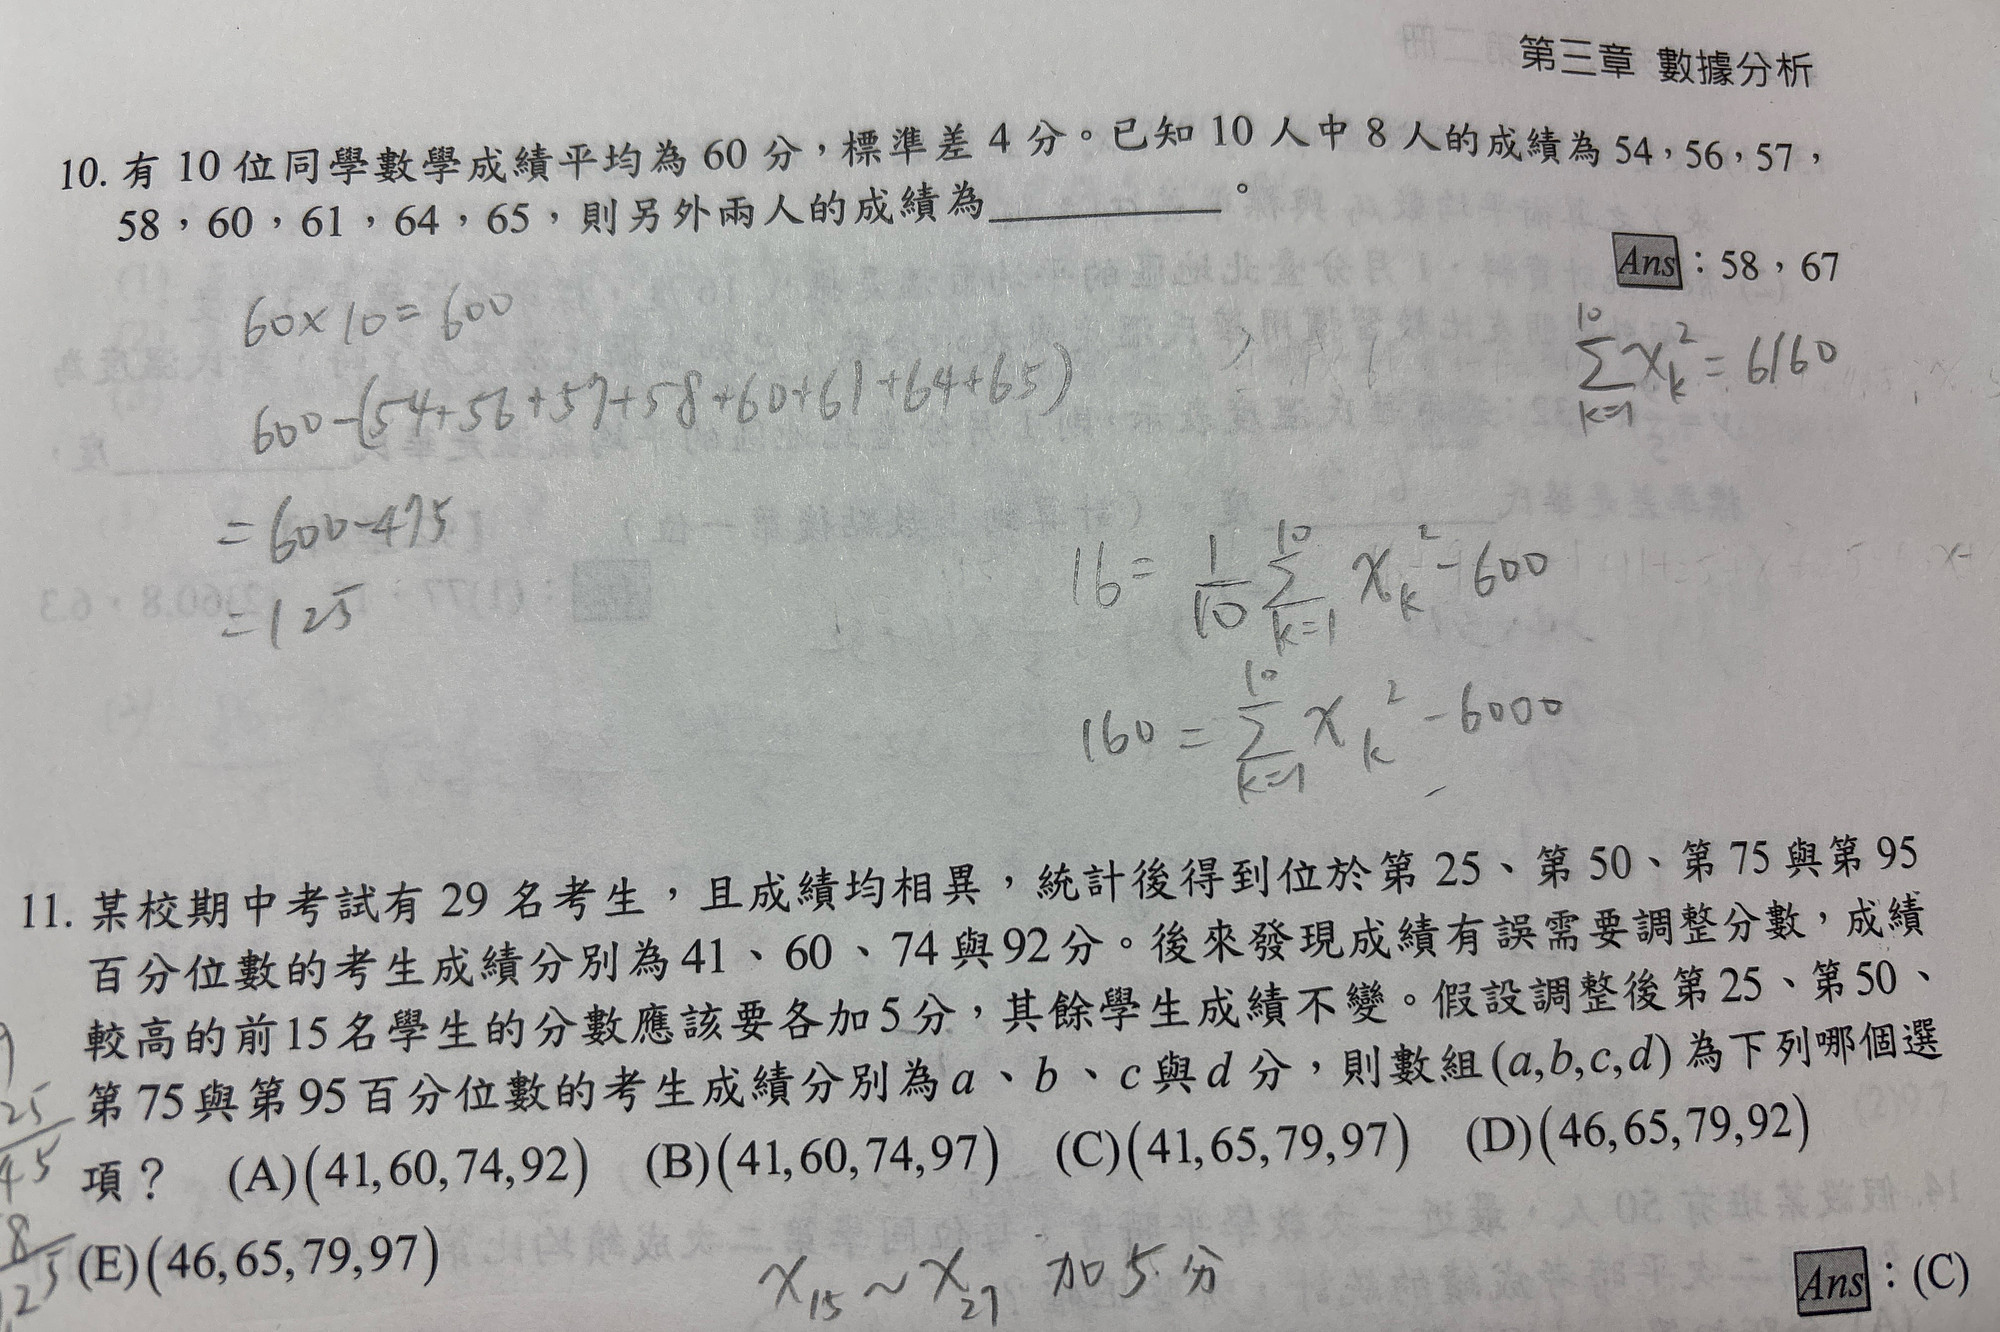 第三章 數據分析
10. 有 10 位同學數學成績平均為 60 分，標準差 4 分。已知 10 人中 8 人的成績為 54，56，57，
58，60，61，64，65，則另外兩人的成績為__________。
Ans：58，67
60×10=600
600-(54+56+57+58+60+61+64+65)
=600-475
=125
\sum_{k=1}^{10} x_k^2 = 6160
16 = \frac{1}{10} \sum_{k=1}^{10} x_k^2 - 600
160 = \sum_{k=1}^{10} x_k^2 - 6000
11. 某校期中考試有 29 名考生，且成績均相異，統計後得到位於第 25、第 50、第 75 與第 95
百分位數的考生成績分別為 41、60、74 與 92 分。後來發現成績有誤需要調整分數，成績
較高的前 15 名學生的分數應該要各加 5 分，其餘學生成績不變。假設調整後第 25、第 50、
第 75 與第 95 百分位數的考生成績分別為 a、b、c 與 d 分，則數組 (a,b,c,d) 為下列哪個選
項？ (A)(41,60,74,92) (B)(41,60,74,97) (C)(41,65,79,97) (D)(46,65,79,92)
(E)(46,65,79,97)
x_{15} ~ x_{29} 加5分
Ans：(C)